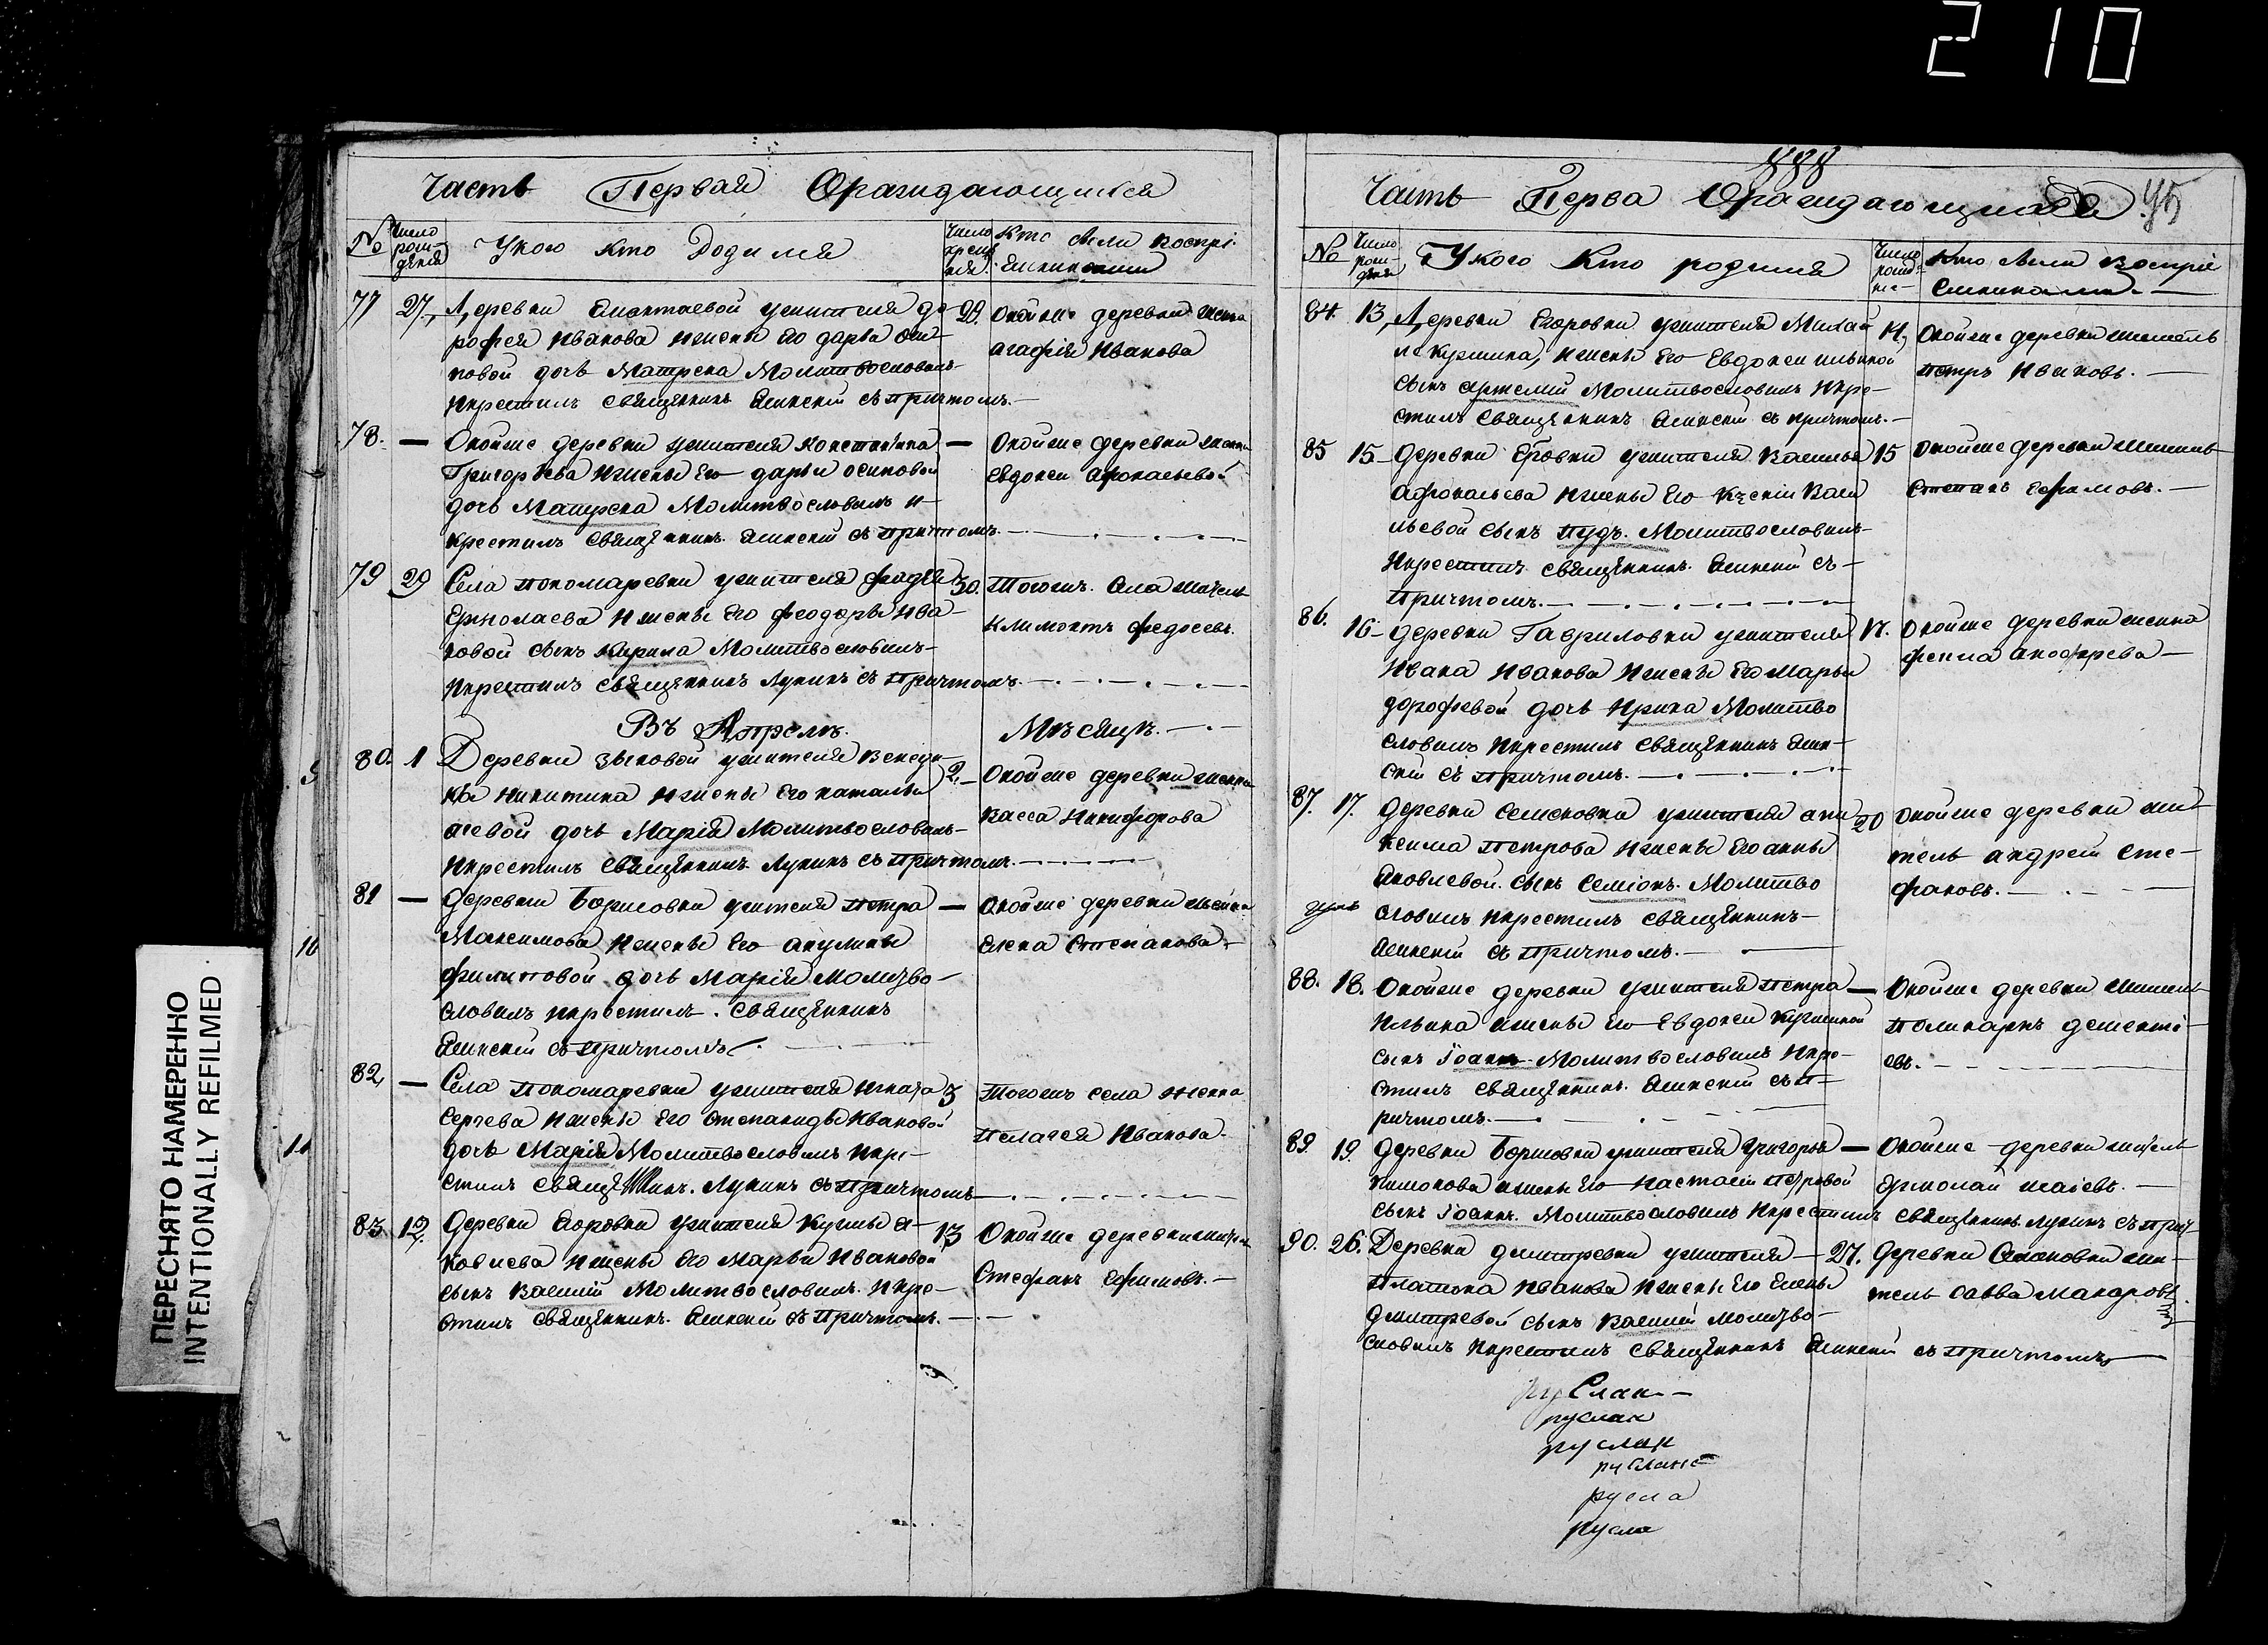 210
ПЕРЕСНЯТО НАМЕРЕННО
INTENTIONALLY REFILMED
Часть Первая Ораждающихся
№ Число рождения У кого кто родился Число крещения Кто были воспріемниками
77 27. Деревни жителя До-
рофея Иванова и жены его дарьи оси-
повой дочь Матрена Молитвословилъ
и крестилъ священникъ съ причтомъ.
28. Онойже деревни жена
агафія Иванова
78. — Онойже деревни жителя Константина
Григорьева и жены его дарьи осиповой
дочь Матрена Молитвословилъ и
крестилъ священникъ съ причтомъ.
— Онойже деревни жена
Евдокеи
79 29 Села пономаревки жителя фадея
Ермолаева и жены его феодоры Ива-
новой сынъ Кирила Молитвословилъ
и крестилъ священникъ Лукинъ съ причтомъ.
30. Тогожъ села житель
Климонтъ федосевъ.
Въ Апреле Месяце.
80. 1 Деревни зыковой жителя Венеди-
Никитина и жены его натальи
дочь Марія Молитвословилъ
и крестилъ священникъ Лукинъ съ причтомъ.
2. Онойже деревни жена
Васса Никифорова
81 — деревни Борисовки жителя петра
Максимова и жены его акулины
филиповой дочь Марія Молитво-
словилъ и крестилъ священникъ
съ причтомъ.
— Онойже деревни жена
елена степанова
82, — Села пономаревки жителя Игната
Сергева и жены его степаниды Ивановой
дочь Марія Молитвословилъ и кре-
стилъ священникъ Лукинъ съ причтомъ
3 Тогожъ села женка
пелагея Иванова
83 12. деревни Егоровки жителя Кузмы я-
ковлева и жены его Марьи Ивановой
сынъ Василій Молитвословилъ и кре-
стилъ священникъ съ причтомъ.
13 Онойже деревни житель
Стефанъ Ефимовъ.
Часть Перва Ораждающихся
№ Число рождения У кого Кто родился Кто были воспріемниками
84. 13, Деревни Егоровки жителя Михай
ле кузмина, и жены его Евдокеи ильиной
сынъ артемій Молитвословилъ и кре-
стилъ священникъ съ причтомъ.
14, Онойже деревни житель
петръ Ивановъ.
85 15 деревни Егровки жителя Василья
афонасьева и жены его Ксеніи Васи
льевой сынъ пудъ. Молитвословилъ
и крестилъ священникъ съ
причтомъ.
15 Онойже деревни житель
степанъ ефимовъ.
86. 16 деревни Гавриловки жителя
Ивана Иванова и жены его Марьи
дорофевой дочь Ирина Молитво
словилъ и крестилъ священникъ
съ причтомъ.
17. Онойже деревни женка
фекла
87. 17. деревни жителя
петрова и жены его анны
яковлевой. сынъ Семіонъ. Молитво
словилъ и крестилъ священникъ
съ причтомъ.
20 Онойже деревни жи-
тель андрей сте-
фановъ.
88. 18. Онойже деревни жителя петра
Ильина и жены его Евдокеи Кузминой
сынъ Іоанъ Молитвословилъ и кре-
стилъ священникъ съ п-
ричтомъ.
— Онойже деревни житель
поликарпъ дементі-
евъ.
89. 19. деревни Борисовки жителя григорья
и жены его настасіи петровой
сынъ Іоаннъ. Молитвословилъ и крестилъ священникъ лукинъ съ прич
— Онойже деревни житель
ермолай исаіевъ.
90. 26. Деревни димитревки жителя
платона Иванова и жены его елены
димитревой сынъ Василій молитво-
словилъ и крестилъ священникъ съ причтомъ
27. деревни жи-
тель савва макаровъ
руслан
руслан
руслан
руслане
русла
русла